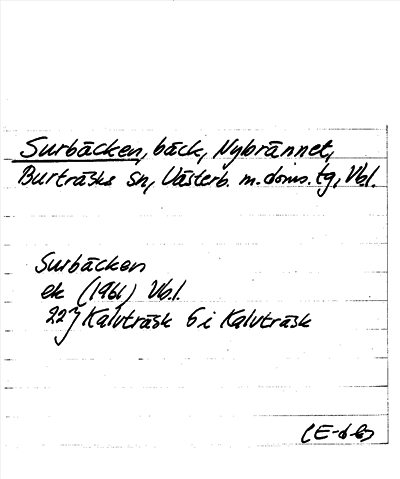 Surbäcken, bäck, Nybrännet,
Burträsks sn, Västerb. m. doms. tg, Vbl.
Surbäcken
ek (1961) Vb.l.
22J Kalvträsk 6 i Kalvträsk